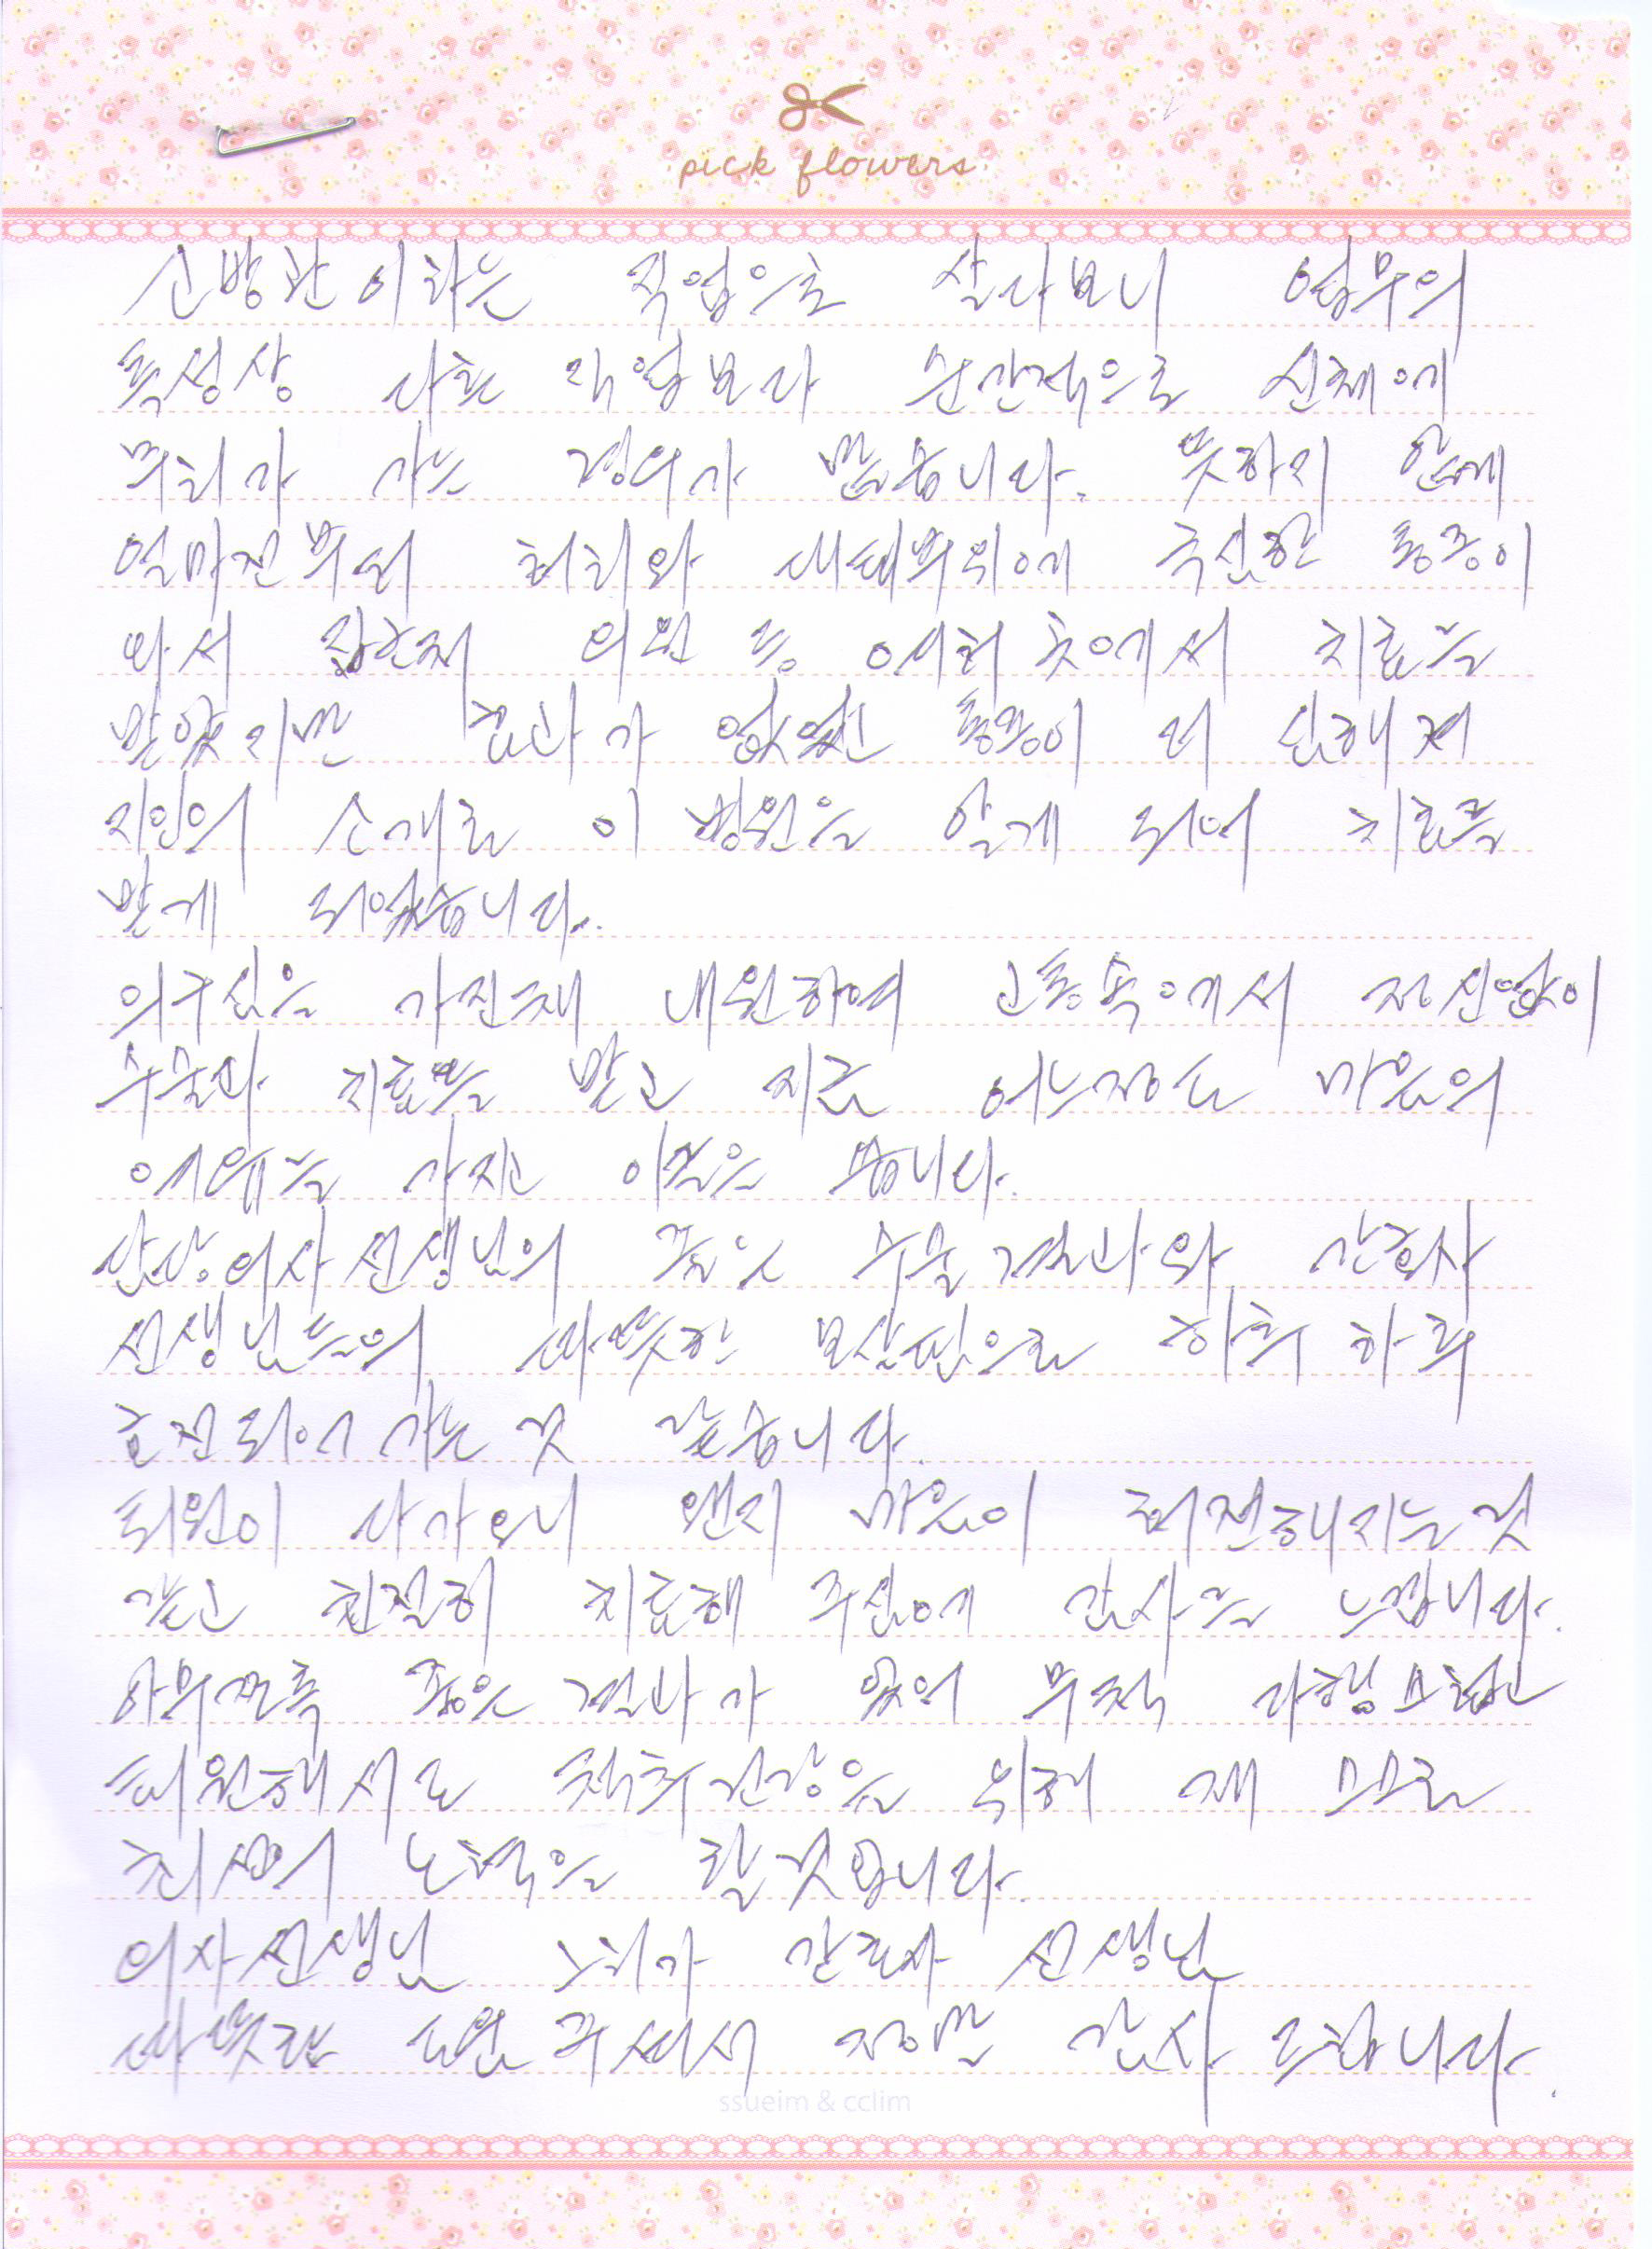 pick flowers
소방관이라는 직업으로 살다보니 업무의
특성상 다른 직업보다 순간적으로 신체에
무리가 가는 경우가 많습니다. 뜻하지 않게
얼마전부터 허리와 대퇴부위에 극심한 통증이
와서 의원 등 여러 곳에서 치료를
받았지만 효과가 없었고 통증이 더 심해져
지인의 소개로 이 병원을 알게 되어 치료를
받게 되었습니다.
의구심을 가진채 내원하여 고통속에서 정신없이
수술과 치료를 받고 지금 어느정도 마음의
여유를 가지고 이글을 씁니다.
담당의사선생님의 좋은 수술결과와 간호사
선생님들의 따뜻한 보살핌으로 하루 하루
호전되어 가는 것 같습니다.
퇴원이 다가오니 왠지 마음이 허전해지는것
같고 친절히 치료해 주심에 감사를 느낍니다.
아무쪼록 좋은 결과가 있어 무척 다행스럽고
퇴원해서도 척추건강을 위해 제 스스로
최선의 노력을 할것입니다.
의사선생님 누리가 간호사 선생님
따뜻한 도움 주셔서 정말 감사 드립니다.
ssueim & cclim